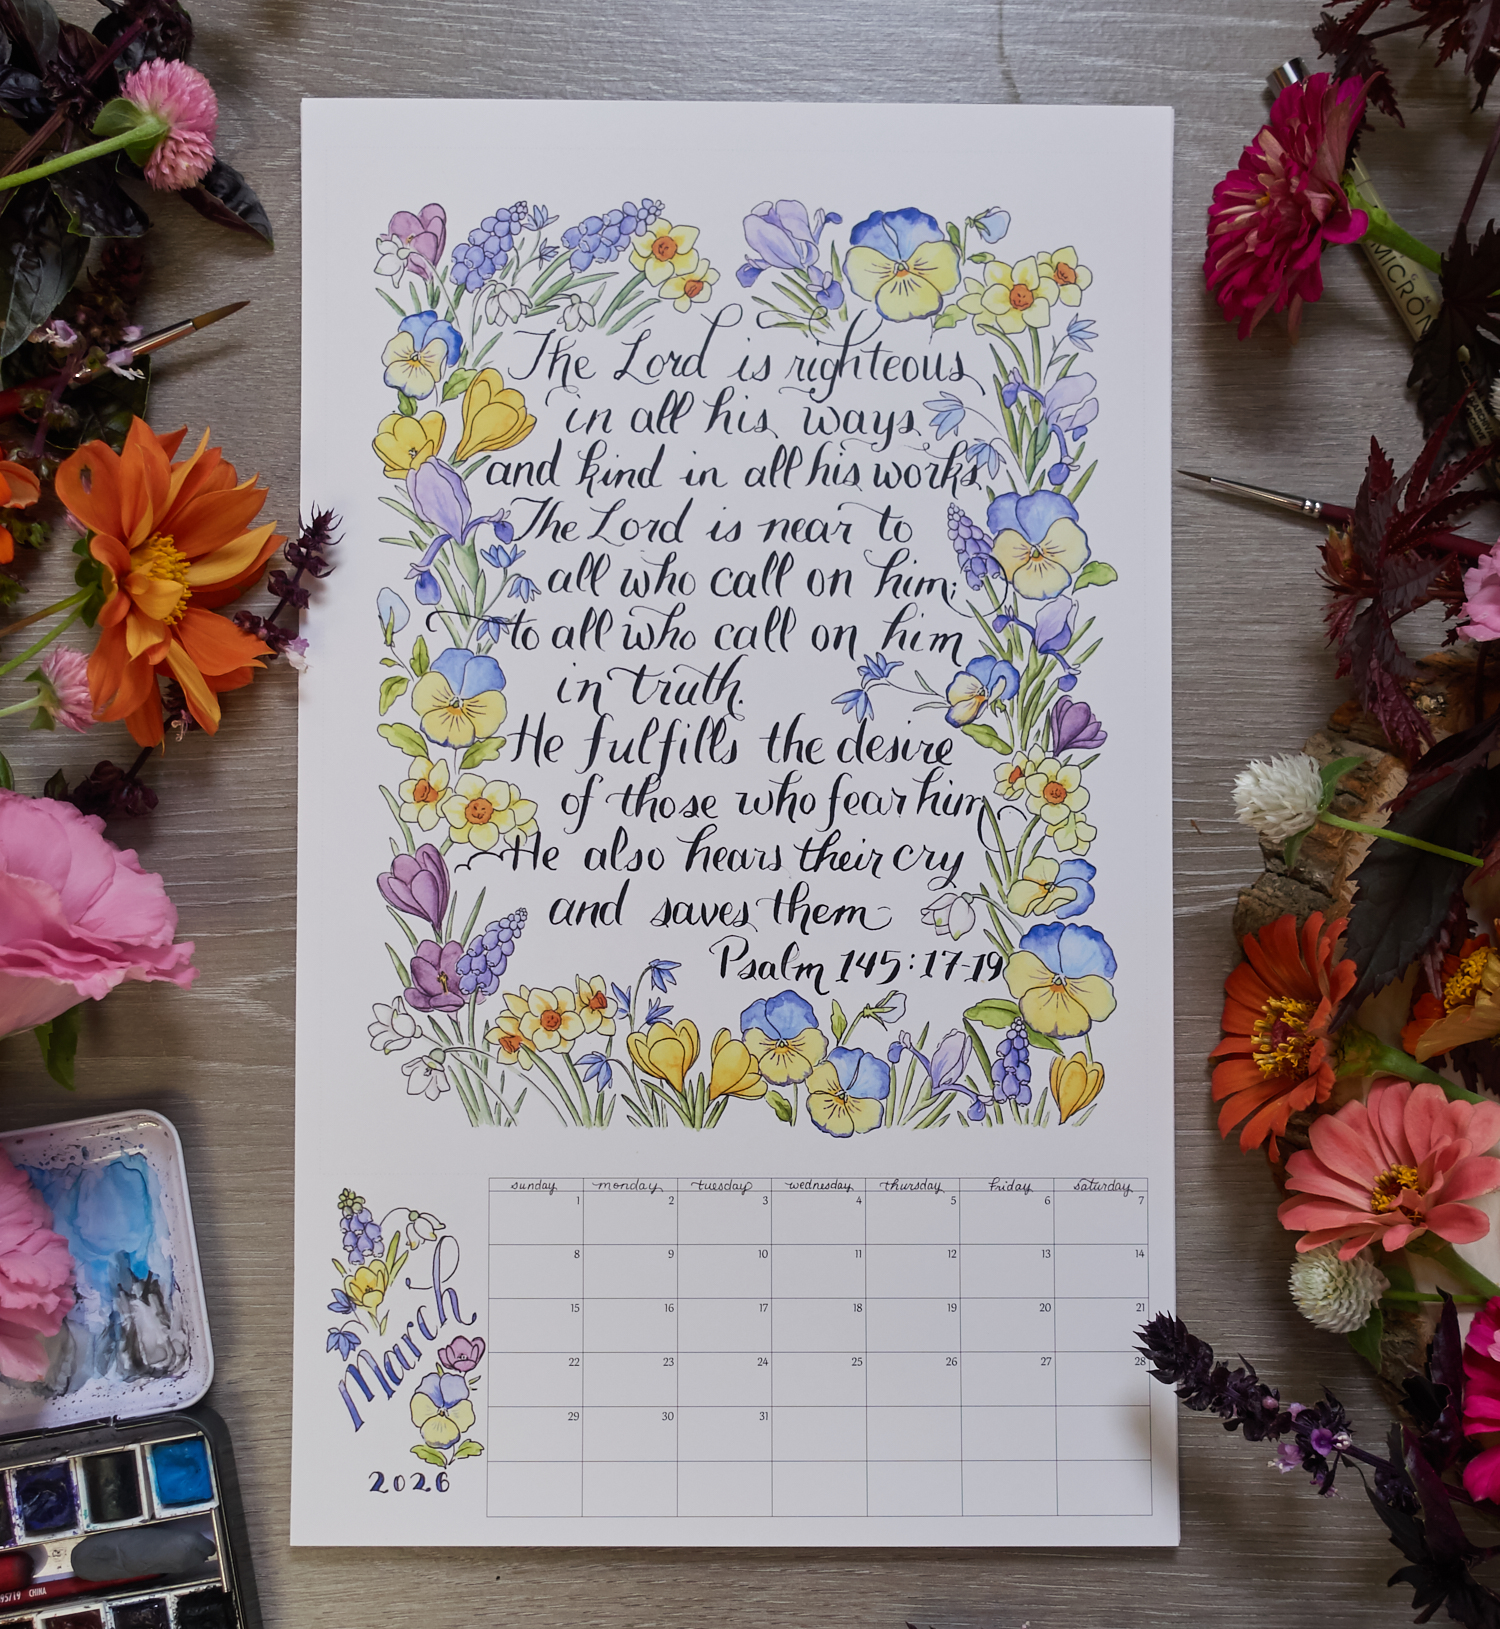 The Lord is righteous
in all his ways
and kind in all his works.
The Lord is near to
all who call on him;
to all who call on him
in truth.
He fulfills the desire
of those who fear him
He also hears their cry
and saves them
Psalm 145:17-19
March
2026
sunday monday tuesday wednesday thursday friday saturday
1 2 3 4 5 6 7
8 9 10 11 12 13 14
15 16 17 18 19 20 21
22 23 24 25 26 27 28
29 30 31
MICRON
CHINA